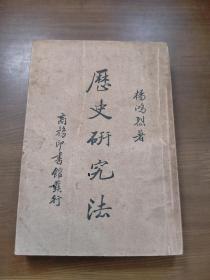 楊鴻烈著
歷史研究法
商務印書館發行